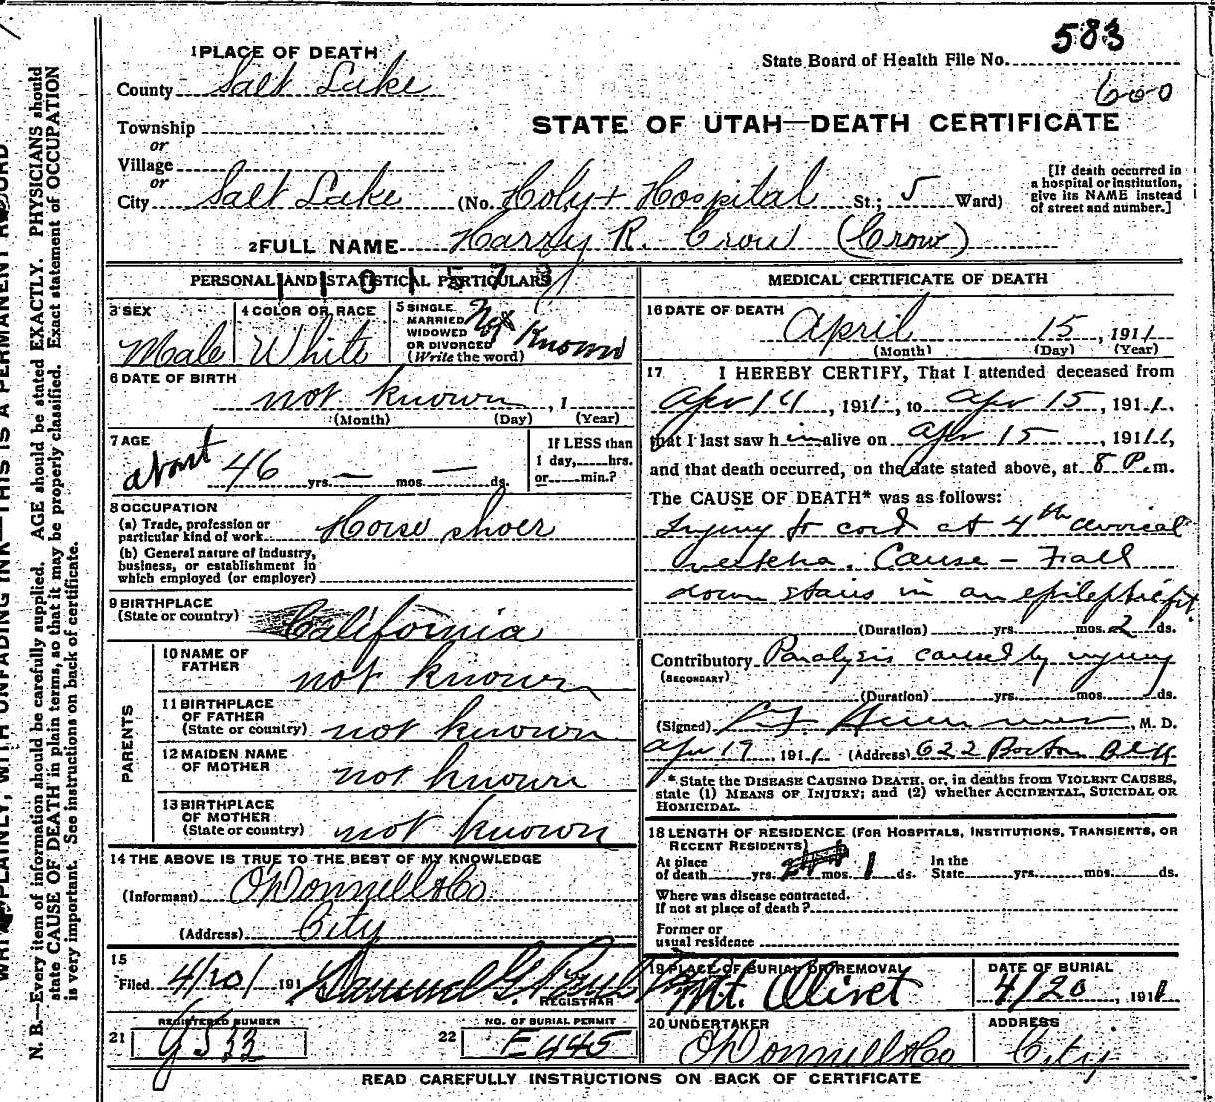 583
1 PLACE OF DEATH
State Board of Health File No.
County Salt Lake
600
Township
or
STATE OF UTAH—DEATH CERTIFICATE
Village
or
City Salt Lake (No. Holy + Hospital St.; 5 Ward)
[If death occurred in
a hospital or institution,
give its NAME instead
of street and number.]
2 FULL NAME Hardy R. Crow (Crow)
PERSONAL AND STATISTICAL PARTICULARS
3 SEX
Male
4 COLOR OR RACE
White
5 SINGLE
MARRIED
WIDOWED
OR DIVORCED
(Write the word)
Not Known
6 DATE OF BIRTH
not known , 1
(Month) (Day) (Year)
7 AGE
about 46 yrs. — mos. — ds.
If LESS than
1 day, hrs.
or min.?
8 OCCUPATION
(a) Trade, profession or
particular kind of work Horse shoer
(b) General nature of industry,
business, or establishment in
which employed (or employer)
9 BIRTHPLACE
(State or country) California
PARENTS
10 NAME OF
FATHER not known
11 BIRTHPLACE
OF FATHER
(State or country) not known
12 MAIDEN NAME
OF MOTHER not known
13 BIRTHPLACE
OF MOTHER
(State or country) not known
14 THE ABOVE IS TRUE TO THE BEST OF MY KNOWLEDGE
(Informant) O'Donnell & Co
(Address) City
15
Filed 4/20/ 191 Samuel G.
REGISTRAR
21 REGISTERED NUMBER
22 NO. OF BURIAL PERMIT
E445
MEDICAL CERTIFICATE OF DEATH
16 DATE OF DEATH
April 15, 1911
(Month) (Day) (Year)
17 I HEREBY CERTIFY, That I attended deceased from
Apr 14, 1911, to Apr 15, 1911.
that I last saw him alive on Apr 15, 1911,
and that death occurred, on the date stated above, at 8 P.m.
The CAUSE OF DEATH* was as follows:
Injury to cord at 4th cervical
vertebra. Cause — Fall
down stairs in an epileptic fit.
(Duration) yrs. mos. 2 ds.
Contributory Paralysis caused by injury
(SECONDARY)
(Duration) yrs. mos. ds.
(Signed) M. D.
Apr 19, 1911 (Address) 622 Boston Blk
* State the DISEASE CAUSING DEATH, or, in deaths from VIOLENT CAUSES,
state (1) MEANS OF INJURY; and (2) whether ACCIDENTAL, SUICIDAL OR
HOMICIDAL.
18 LENGTH OF RESIDENCE (FOR HOSPITALS, INSTITUTIONS, TRANSIENTS, OR
RECENT RESIDENTS)
At place
of death yrs. mos. 1 ds.
In the
State yrs. mos. ds.
Where was disease contracted.
If not at place of death?
Former or
usual residence
19 PLACE OF BURIAL OR REMOVAL
Mt. Olivet
DATE OF BURIAL
4/20, 1911
20 UNDERTAKER
O'Donnell & Co
ADDRESS
City
READ CAREFULLY INSTRUCTIONS ON BACK OF CERTIFICATE
PLAINLY, WITH UNFADING INK—THIS IS A PERMANENT RECORD
N. B.—Every item of information should be carefully supplied. AGE should be stated EXACTLY. PHYSICIANS should
state CAUSE OF DEATH in plain terms, so that it may be properly classified. Exact statement of OCCUPATION
is very important. See instructions on back of certificate.